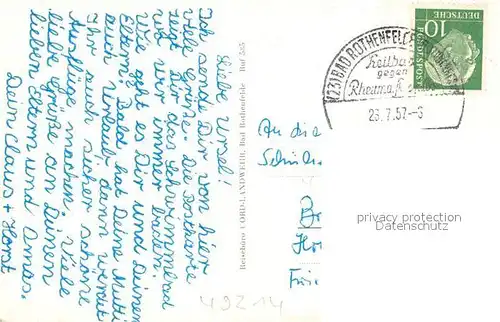 Liebe Ursel!
Ich sende Dir von hier
viele Grüße. Die Postkarte
zeigt Dir das Schwimmbad
wo wir immer baden.
Wie geht es Dir und Deinen
Eltern? Bald hat Deine Mutti
auch Urlaub, dann werdet
Ihr auch sicher schöne
Ausflüge machen. Viele
liebe Grüße an Deinen
lieben Eltern und Omas.
Dein Claus + Horst
Reisebüro CORDSLANDWEHR, Bad Rothenfelde Ruf 385
(23) BAD ROTHENFELDE
Heilbad
gegen
Rheuma
23.7.57
10
DEUTSCHE
BUNDESPOST
An die
privacy protection
Datenschutz
49Z-14